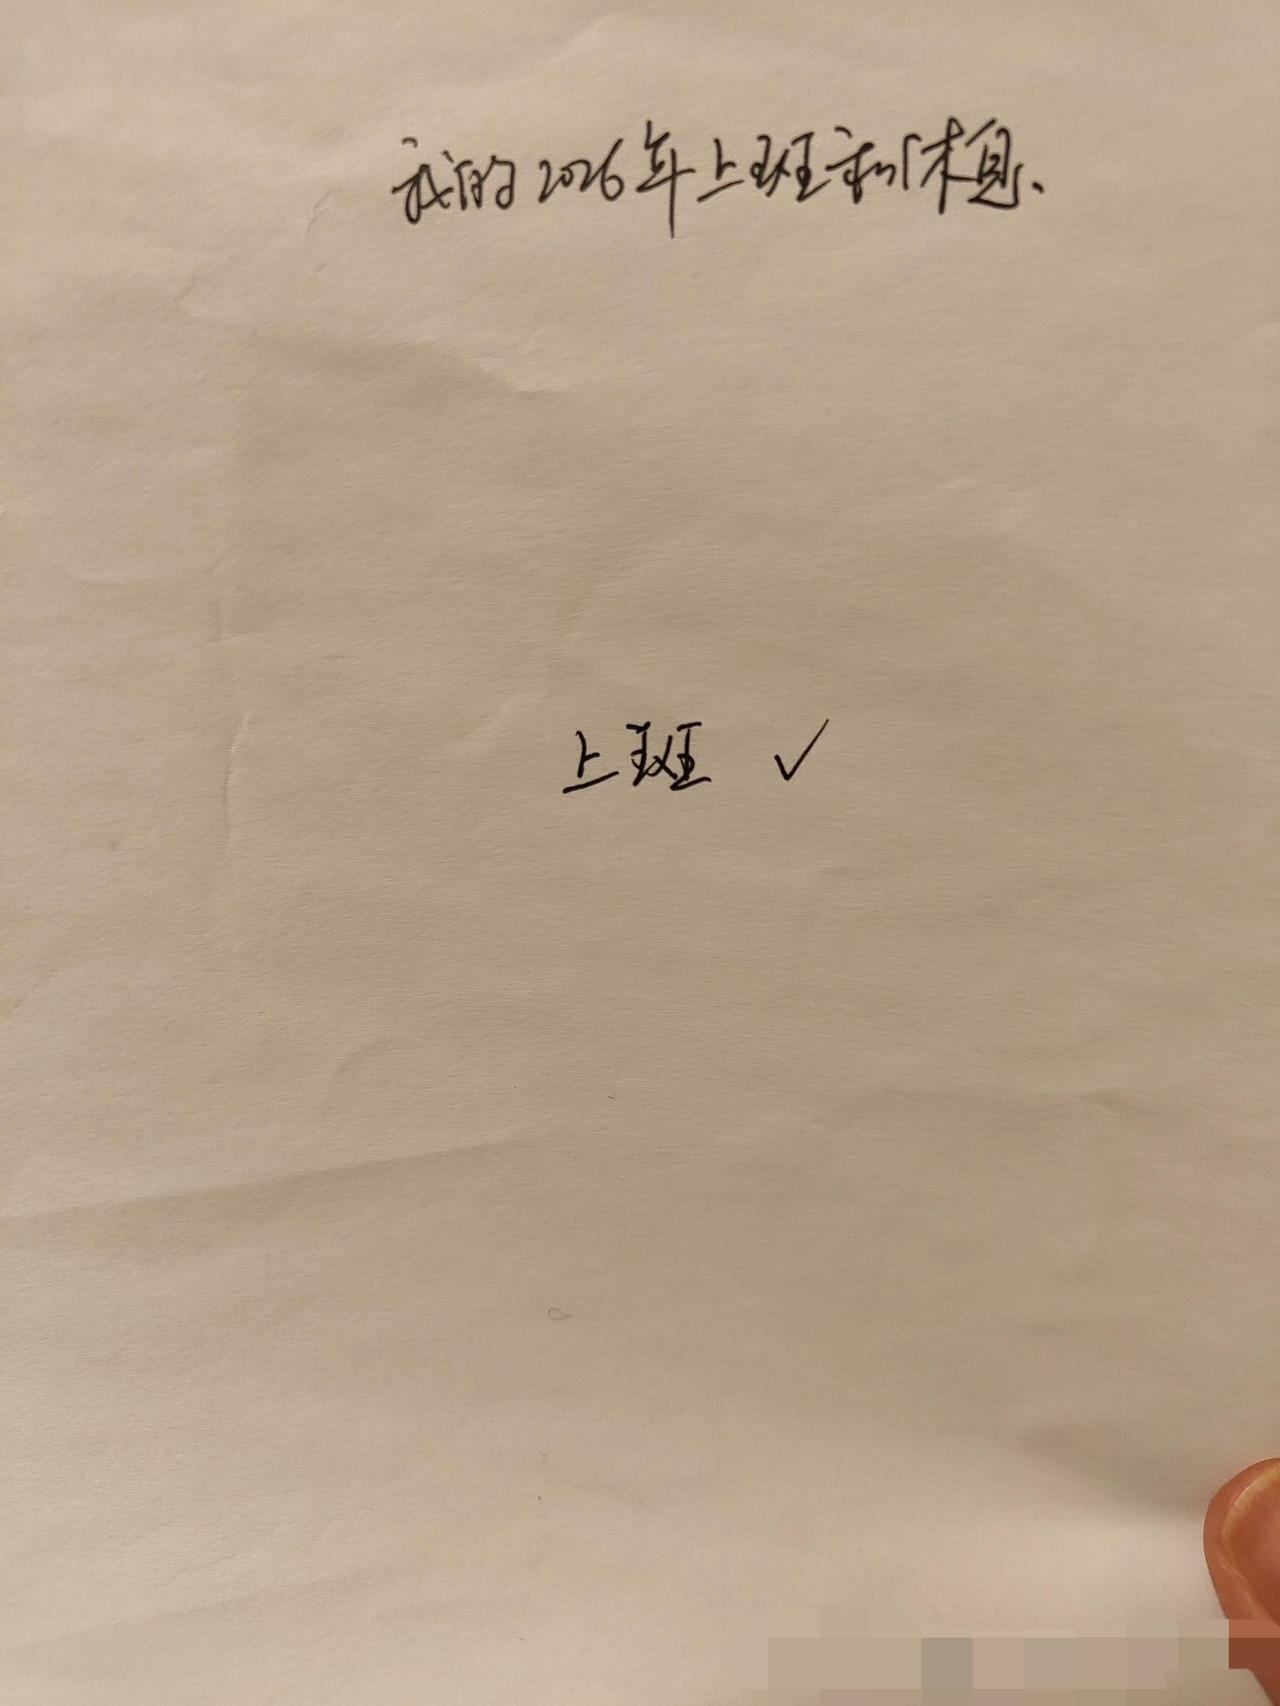 我的2026年上班和休息、
上班 ✓